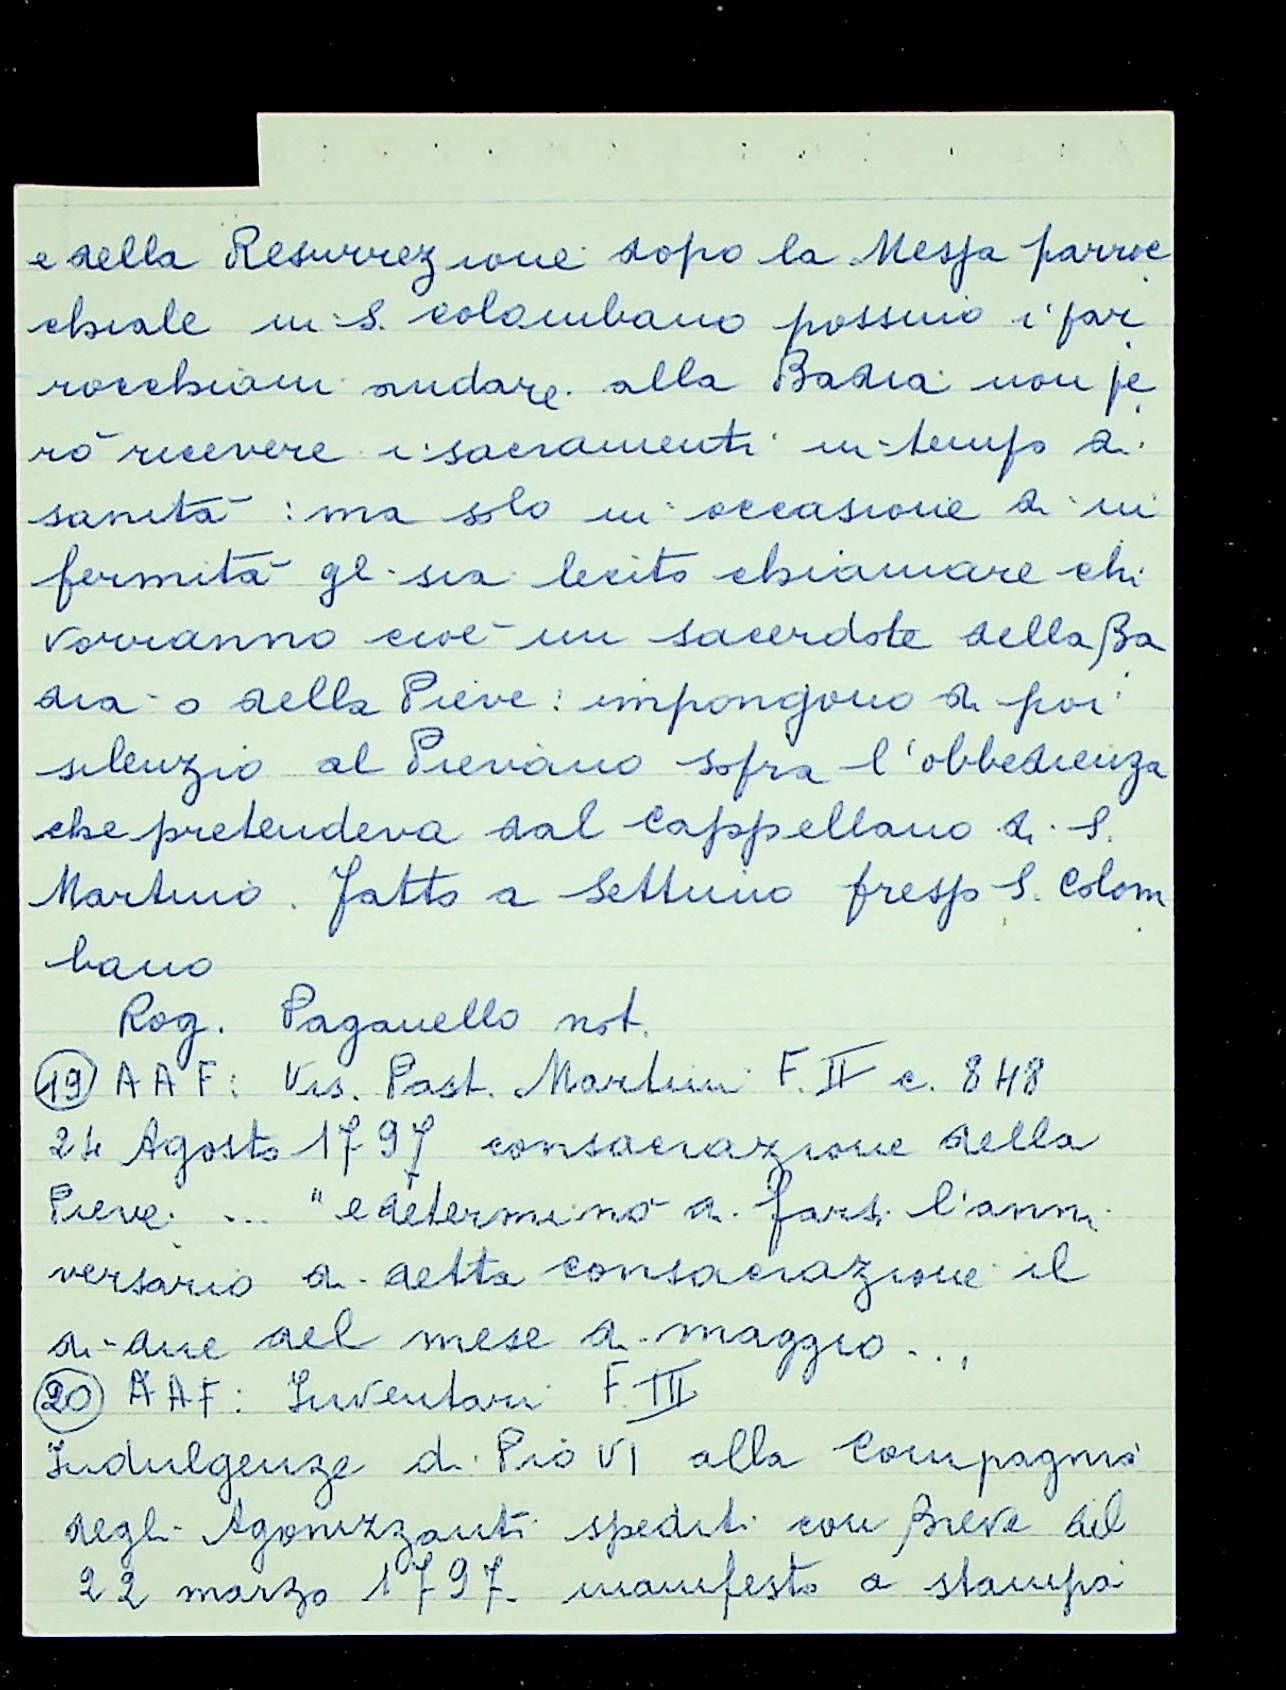 e della Resurrezione dopo la Messa parroc
chiale in S. Colombano possino i par
rocchiani andare alla Badia non pe
rò ricevere i sacramenti in tempo di
sanità : ma solo in occasione di in
fermità gl sia lecito chiamare chi
vorranno cioè un sacerdote della Ba
dia o della Pieve : impongono di poi
silenzio al Pievano sopra l'obbedienza
che pretendeva dal Cappellano di S.
Martino . Fatto a Settimo presso S. Colom
bano
Rog. Paganello not.
19 A A F : Vis. Past. Martini F. II c. 848
24 Agosto 1797 consacrazione della
Pieve ... " e determinò di farsi l'anni
versario di detta consacrazione il
di due del mese di maggio ...
20 A A F : Inventari F. III
Indulgenze di Pio VI alla Compagnia
degli Agonizzanti spediti con Breve del
22 marzo 1797. manifesto a stampa